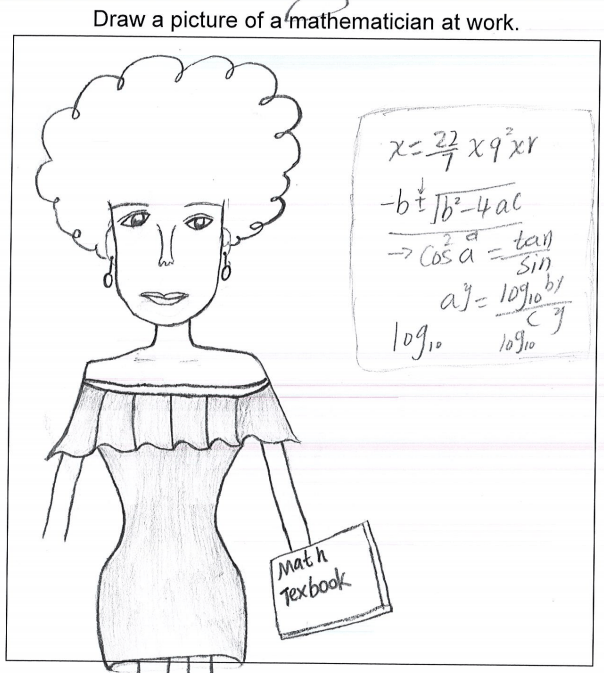 Draw a picture of a mathematician at work.
x = 22/7 x q² x r
-b ± √b²-4ac
→ cos² a = tan/sin
a^y = log₁₀ by / c y
log₁₀ log₁₀
Math
Texbook